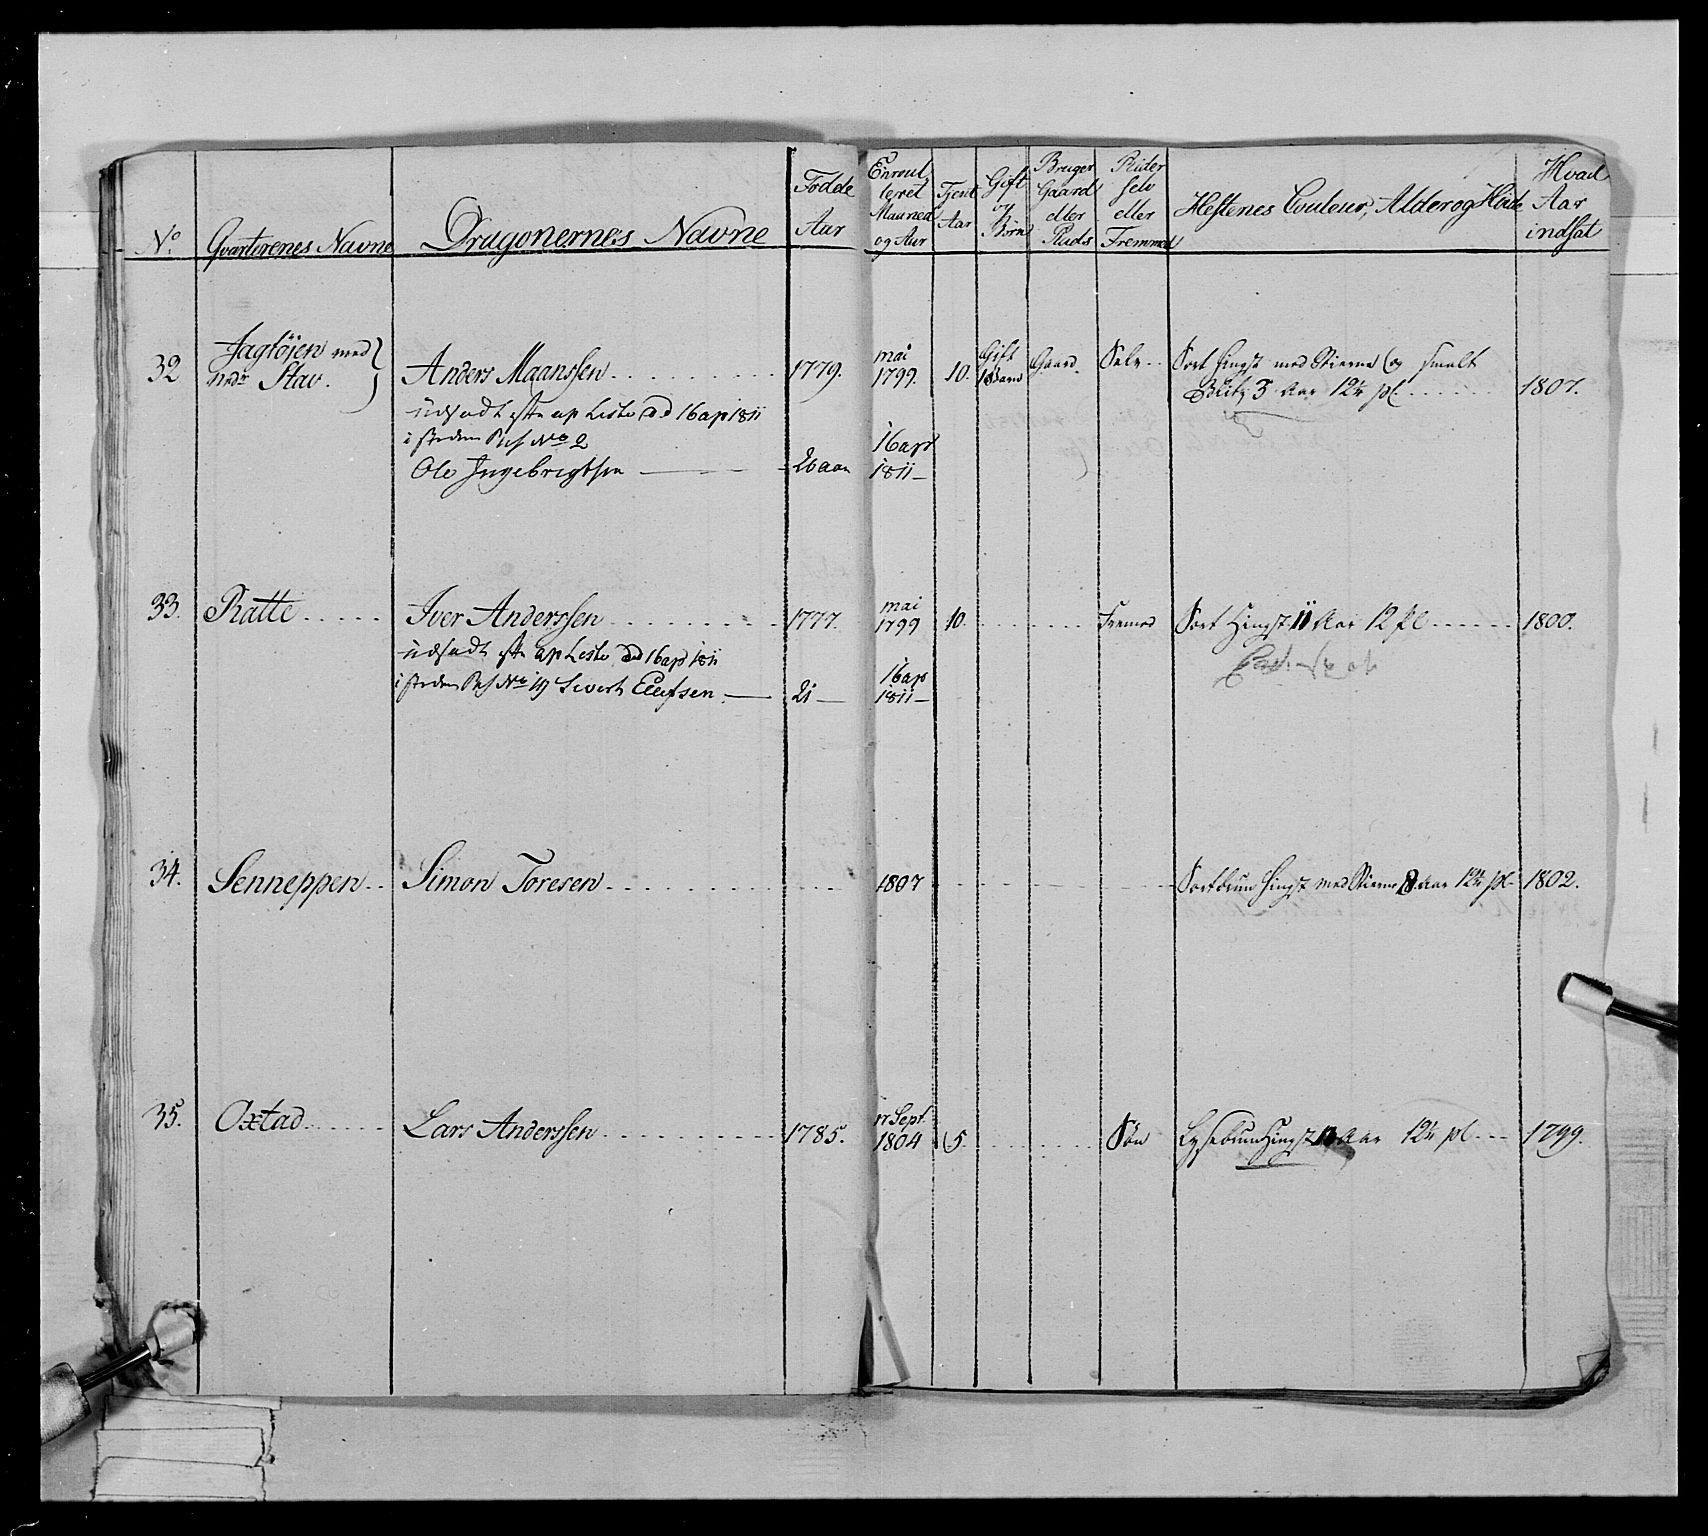 No.
Qvarterenes Navne
Dragonernes Navne
Fødde
Aar
Enroul
leret
Maaned
og Aar
Tjent
Aar
Gift
og
Børn
Bruger
Gaard
eller
Plads
Rider
selv
eller
Fremmed
Hestenes Couleur, Alder og Høide
Hvad
Aar
indsat
32
Jagtøjen med
nedr Stav.
Anders Maanssen
1779.
mai
1799.
10.
Gift
1 Barn
Gaard
Selv
Sort Hingst med Stierne og smalt
Blitz 3 Aar 12 qr pl.
1807.
udsadt efter ap Liste dd 16 ap 1811
i steden Res No 2
Ole Ingebrigtsen
20 aar
16 apr
1811
33.
Ratte
Iver Anderssen
1777.
mai
1799
10.
Fremed
Sort Hingst 11 Aar 12 pl
1800.
udsadt efter ap Liste dd 16 ap 1811
i steden Res No 19 Sivert Elefsen
21
16 ap
1811
34.
Senneppen
Simon Toresen
1807
Sortbrun Hingst med Stierne 8 Aar 12 qr pl
1802.
35.
Oxtad
Lars Anderssen
1785.
17 Sept.
1804
5.
Søn
Lysebrun Hingst Aar 12 qr pl
1799.